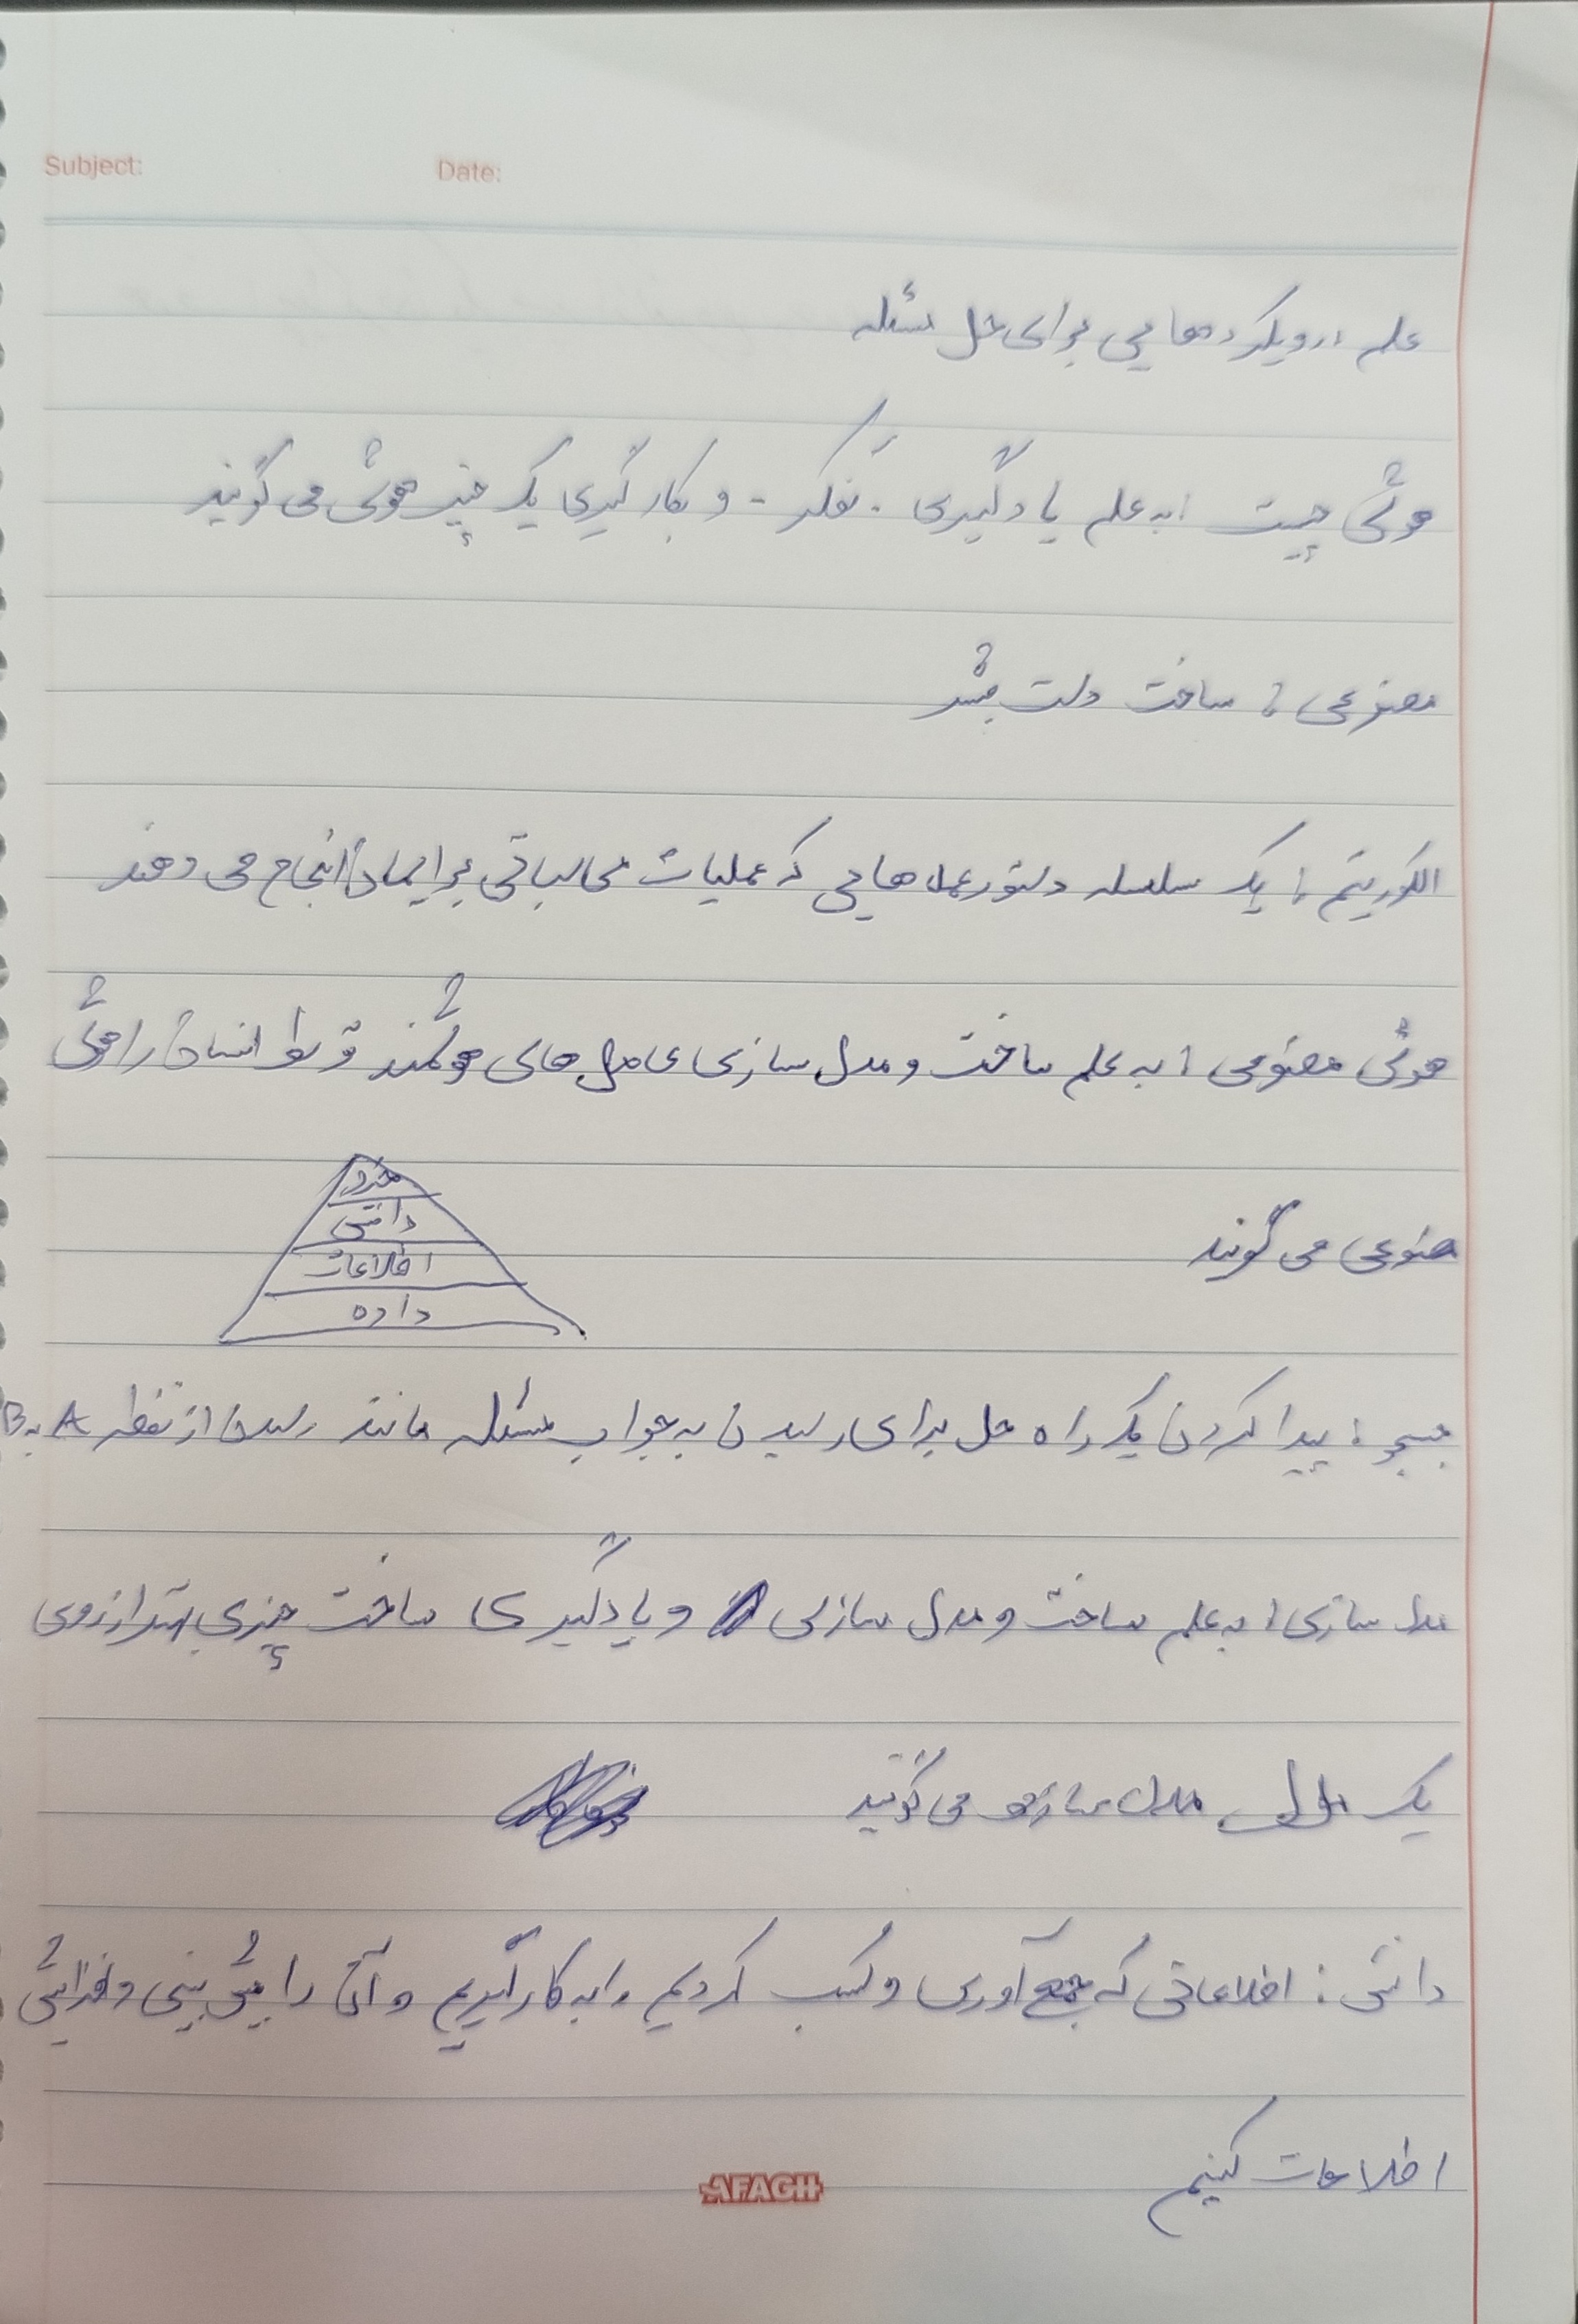 Subject: Date:
علم : رویکردهایی برای حل مسئله
هوش چیست : به علم یادگیری - تفکر - و بکارگیری یک چیز هوش می گویند
مصنوعی : ساخت دست بشر
الگوریتم : یک سلسله دستورعمل هایی که عملیات محاسباتی برایمان انجام می دهند
هوش مصنوعی : به علم ساخت و مدل سازی عامل های هوشمند توسط انسان را هوش
مصنوعی می گویند
خرد
دانش
اطلاعات
داده
جستجو : پیدا کردن یک راه حل برای رسیدن به جواب مسئله مانند رسیدن از نقطه A به B
مدل سازی : به علم ساخت و مدل سازی و یادگیری ساخت چیزی از روی
یک مدل مدل سازی می گویند
دانش : اطلاعاتی که جمع آوری و کسب کردیم را به کار گیریم و آن را پیش بینی و افزایش
اطلاعات کنیم
AFAGH